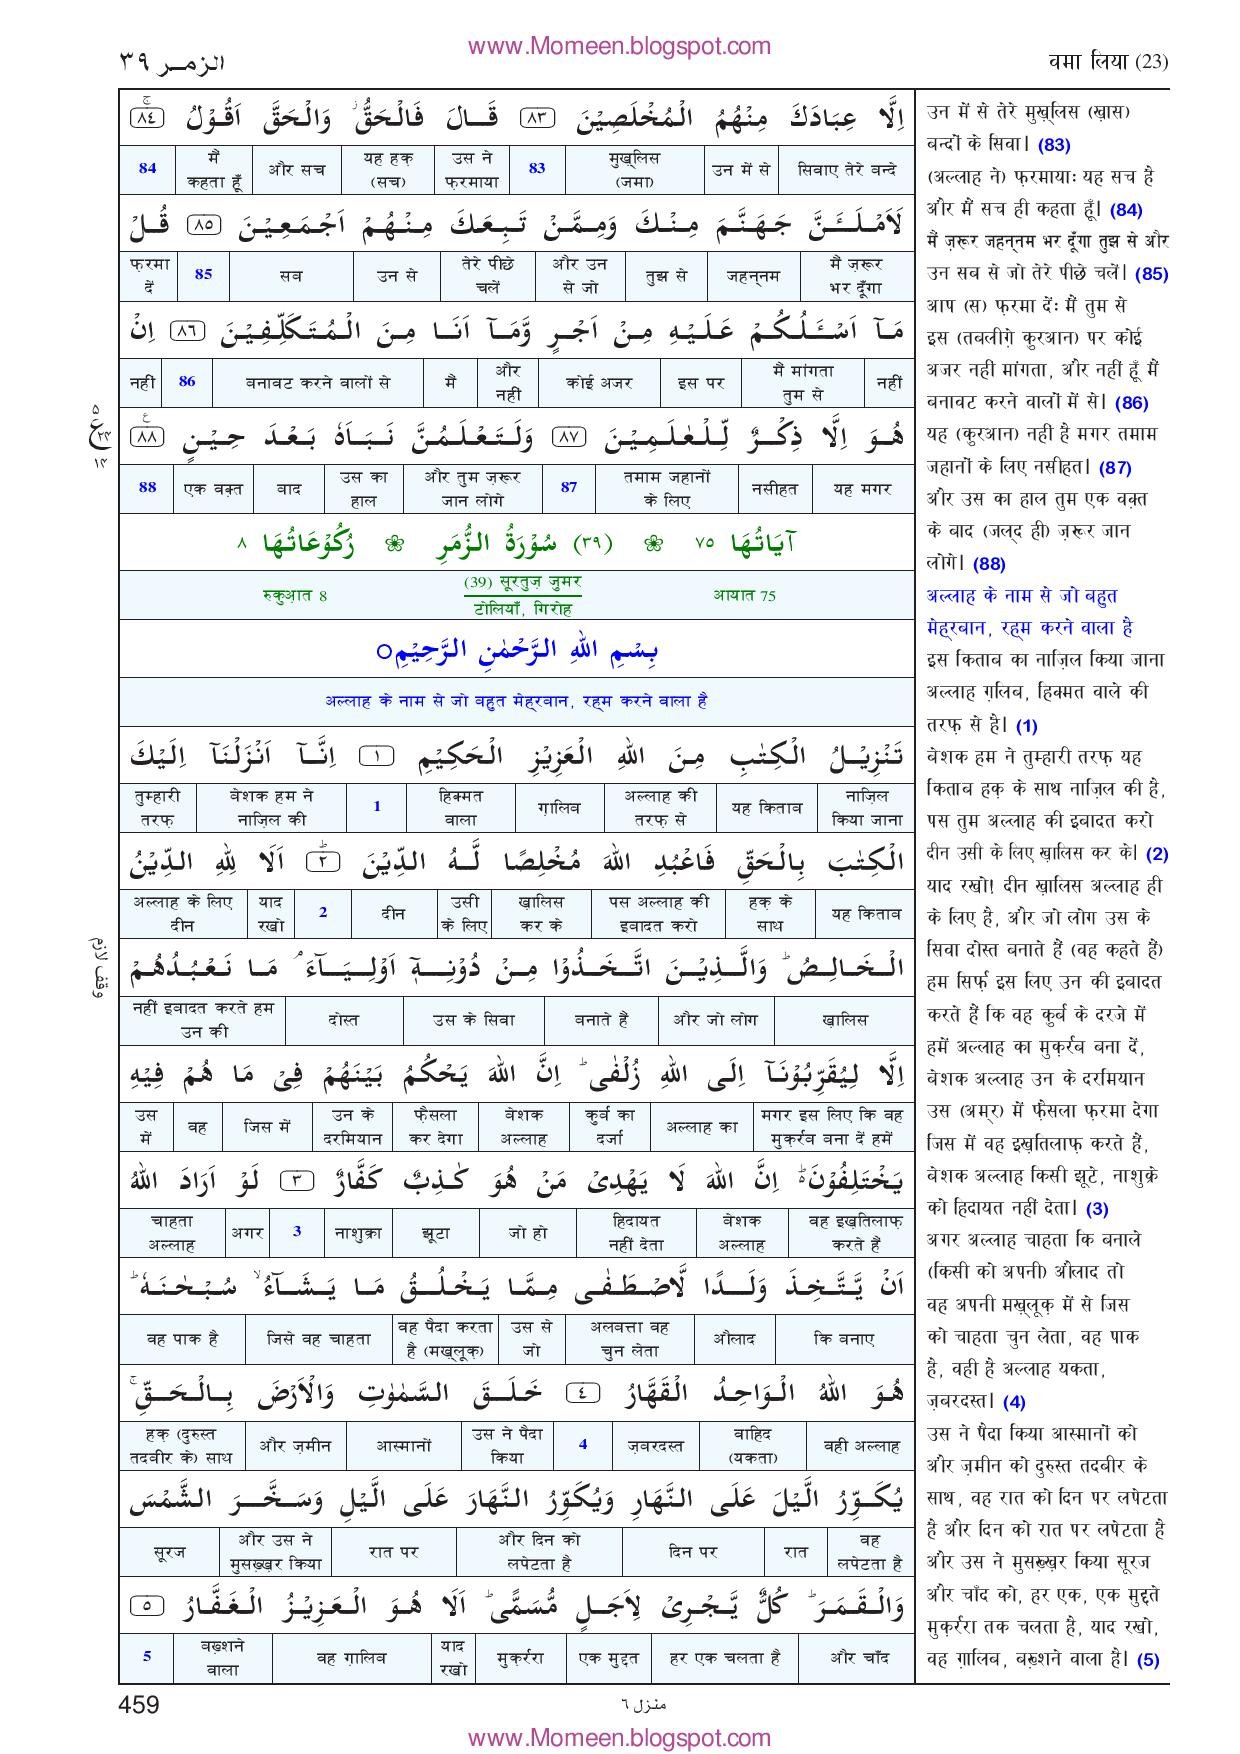 www.Momeen.blogspot.com
الزمر ٣٩
वमा लिया (23)
اِلَّا عِبَادَكَ مِنْهُمُ الْمُخْلَصِيْنَ ٨٣ قَالَ فَالْحَقُّ ۫ وَالْحَقَّ اَقُوْلُ ٨٤ ۚ
सिवाए तेरे बन्दे | उन में से | मुख़्लिस (जमा) | 83 | उस ने फ़रमाया | यह हक़ (सच) | और सच | मैं कहता हूँ | 84
لَاَمْلَـَٔنَّ جَهَنَّمَ مِنْكَ وَمِمَّنْ تَبِعَكَ مِنْهُمْ اَجْمَعِيْنَ ٨٥ قُلْ
मैं ज़रूर भर दूँगा | जहन्नम | तुझ से | और उन से जो | तेरे पीछे चलें | उन से | सब | 85 | फ़रमा दें
مَآ اَسْـَٔلُكُمْ عَلَيْهِ مِنْ اَجْرٍ وَّمَآ اَنَا مِنَ الْمُتَكَلِّفِيْنَ ٨٦ اِنْ
नहीं | मैं मांगता तुम से | इस पर | कोई अजर | और नही | मैं | बनावट करने वालों से | 86 | नहीं
هُوَ اِلَّا ذِكْرٌ لِّلْعٰلَمِيْنَ ٨٧ وَلَتَعْلَمُنَّ نَبَاَهٗ بَعْدَ حِيْنٍ ٨٨ ع
यह मगर | नसीहत | तमाम जहानों के लिए | 87 | और तुम ज़रूर जान लोगे | उस का हाल | बाद | एक वक़्त | 88
آيَاتُهَا ٧٥ ❀ (٣٩) سُوْرَةُ الزُّمَرِ ❀ رُكُوْعَاتُهَا ٨
आयात 75 | (39) सूरतुज़ जुमर टोलियाँ, गिरोह | रुकुआ़त 8
بِسْمِ اللهِ الرَّحْمٰنِ الرَّحِيْمِ ○
अल्लाह के नाम से जो बहुत मेह्रबान, रह्म करने वाला है
تَنْزِيْلُ الْكِتٰبِ مِنَ اللهِ الْعَزِيْزِ الْحَكِيْمِ ١ اِنَّآ اَنْزَلْنَآ اِلَيْكَ
नाज़िल किया जाना | यह किताब | अल्लाह की तरफ़ से | ग़ालिब | हिक्मत वाला | 1 | बेशक हम ने नाज़िल की | तुम्हारी तरफ़
الْكِتٰبَ بِالْحَقِّ فَاعْبُدِ اللهَ مُخْلِصًا لَّهُ الدِّيْنَ ٢ ؕ اَلَا لِلهِ الدِّيْنُ
यह किताब | हक़ के साथ | पस अल्लाह की इबादत करो | ख़ालिस कर के | उसी के लिए | दीन | 2 | याद रखो | अल्लाह के लिए दीन
الْخَالِصُ ؕ وَالَّذِيْنَ اتَّخَذُوْا مِنْ دُوْنِهٖٓ اَوْلِيَآءَ ۘ مَا نَعْبُدُهُمْ
ख़ालिस | और जो लोग | बनाते हैं | उस के सिवा | दोस्त | नहीं इबादत करते हम उन की
اِلَّا لِيُقَرِّبُوْنَآ اِلَى اللهِ زُلْفٰى ؕ اِنَّ اللهَ يَحْكُمُ بَيْنَهُمْ فِيْ مَا هُمْ فِيْهِ
मगर इस लिए कि वह मुक़र्रब बना दें हमें | अल्लाह का | कुर्ब का दर्जा | बेशक अल्लाह | फ़ैसला कर देगा | उन के दरमियान | जिस में | वह | उस में
يَخْتَلِفُوْنَ ؕ اِنَّ اللهَ لَا يَهْدِيْ مَنْ هُوَ كٰذِبٌ كَفَّارٌ ٣ لَوْ اَرَادَ اللهُ
वह इख़तिलाफ़ करते हैं | बेशक अल्लाह | हिदायत नहीं देता | जो हो | झूटा | नाशुक्रा | 3 | अगर | चाहता अल्लाह
اَنْ يَّتَّخِذَ وَلَدًا لَّاصْطَفٰى مِمَّا يَخْلُقُ مَا يَشَآءُ ۙ سُبْحٰنَهٗ ؕ
कि बनाए | औलाद | अलबत्ता वह चुन लेता | उस से जो | वह पैदा करता है (मख़्लूक़) | जिसे वह चाहता | वह पाक है
هُوَ اللهُ الْوَاحِدُ الْقَهَّارُ ٤ خَلَقَ السَّمٰوٰتِ وَالْاَرْضَ بِالْحَقِّ ۚ
वही अल्लाह | वाहिद (यकता) | ज़बरदस्त | 4 | उस ने पैदा किया | आस्मानों | और ज़मीन | हक़ (दुरुस्त तदबीर के) साथ
يُكَوِّرُ الَّيْلَ عَلَى النَّهَارِ وَيُكَوِّرُ النَّهَارَ عَلَى الَّيْلِ وَسَخَّرَ الشَّمْسَ
वह लपेटता है | रात | दिन पर | और दिन को लपेटता है | रात पर | और उस ने मुसख़्ख़र किया | सूरज
وَالْقَمَرَ ؕ كُلٌّ يَّجْرِيْ لِاَجَلٍ مُّسَمًّى ؕ اَلَا هُوَ الْعَزِيْزُ الْغَفَّارُ ٥
और चाँद | हर एक चलता है | एक मुद्दत | मुक़र्ररा | याद रखो | वह ग़ालिब | बख़्शने वाला | 5
उन में से तेरे मुख़्लिस (ख़ास)
बन्दों के सिवा। (83)
(अल्लाह ने) फ़रमायाः यह सच है
और मैं सच ही कहता हूँ। (84)
मैं ज़रूर जहन्नम भर दूँगा तुझ से और
उन सब से जो तेरे पीछे चलें। (85)
आप (स) फ़रमा देंः मैं तुम से
इस (तबलीग़े कुरआन) पर कोई
अजर नही मांगता, और नहीं हूँ मैं
बनावट करने वालों में से। (86)
यह (कुरआन) नही है मगर तमाम
जहानों के लिए नसीहत। (87)
और उस का हाल तुम एक वक़्त
के बाद (जल्द ही) ज़रूर जान
लोगे। (88)
अल्लाह के नाम से जो बहुत
मेह्रबान, रह्म करने वाला है
इस किताब का नाज़िल किया जाना
अल्लाह ग़लिब, हिक्मत वाले की
तरफ़ से है। (1)
बेशक हम ने तुम्हारी तरफ़ यह
किताब हक़ के साथ नाज़िल की है,
पस तुम अल्लाह की इबादत करो
दीन उसी के लिए ख़ालिस कर के। (2)
याद रखो! दीन ख़ालिस अल्लाह ही
के लिए है, और जो लोग उस के
सिवा दोस्त बनाते हैं (वह कहते हैं)
हम सिर्फ़ इस लिए उन की इबादत
करते हैं कि वह कुर्ब के दरजे में
हमें अल्लाह का मुक़र्रब बना दें,
बेशक अल्लाह उन के दरमियान
उस (अम्र) में फ़ैसला फ़रमा देगा
जिस में वह इख़तिलाफ़ करते हैं,
बेशक अल्लाह किसी झूटे, नाशुक्रे
को हिदायत नहीं देता। (3)
अगर अल्लाह चाहता कि बनाले
(किसी को अपनी) औलाद तो
वह अपनी मख़्लूक़ में से जिस
को चाहता चुन लेता, वह पाक
है, वही है अल्लाह यकता,
ज़बरदस्त। (4)
उस ने पैदा किया आस्मानों को
और ज़मीन को दुरुस्त तदबीर के
साथ, वह रात को दिन पर लपेटता
है और दिन को रात पर लपेटता है
और उस ने मुसख़्ख़र किया सूरज
और चाँद को, हर एक, एक मुद्दते
मुक़र्ररा तक चलता है, याद रखो,
वह ग़ालिब, बख़्शने वाला है। (5)
ع
١٤
وقف لازم
459
منزل ٦
www.Momeen.blogspot.com